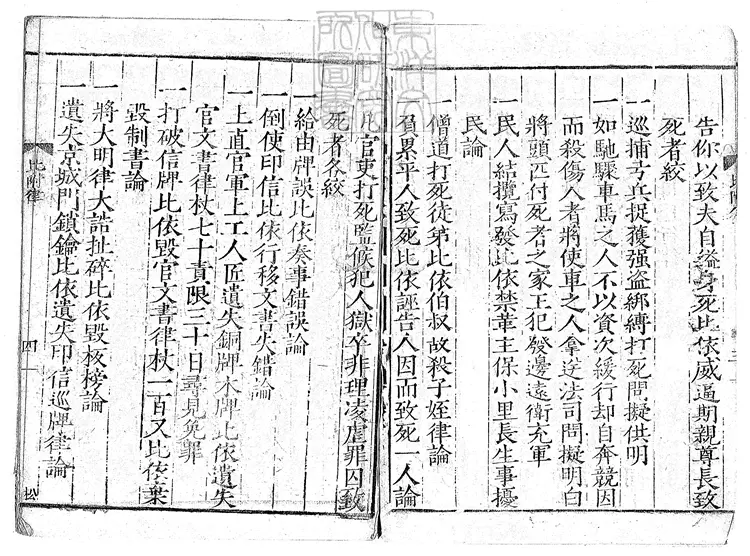 告你以致夫自縊身死比依威逼期親尊長致
死者絞
一巡捕弓兵捉獲强盗綁縛打死問擬供明
一如馳驟車馬之人不以資次緩行却自奔競因
而殺傷人者將使車之人拿送法司問擬明白
將頭匹付死者之家王犯發邊遠衛充軍
一民人結攬寫發比依禁革主保小里長生事擾
民論
一僧道打死徒弟比依伯叔故殺子姪律論
一負累平人致死比依誣告人因而致死一人論
一凡官吏打死監候犯人獄卒非理凌虐罪囚致
死者各絞
一給由牌誤比依奏事錯誤論
一倒使印信比依行移文書失錯論
一上直官軍上工人匠遺失銅牌木牌比依遺失
官文書律杖七十責限三十日尋見免罪
一打破信牌比依毀官文書律杖一百又比依棄
毀制書論
一將大明律大誥扯碎比依毀板榜論
一遺失京城門鎖鑰比依遺失印信巡牌律論
比附律
四